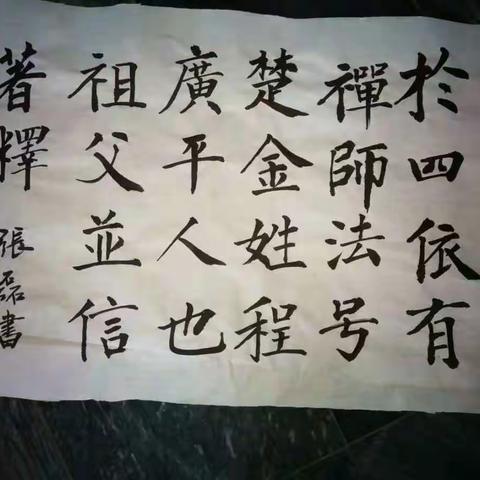 於四依有
禪師法号
楚金姓程
廣平人也
祖父並信
著釋
張磊書